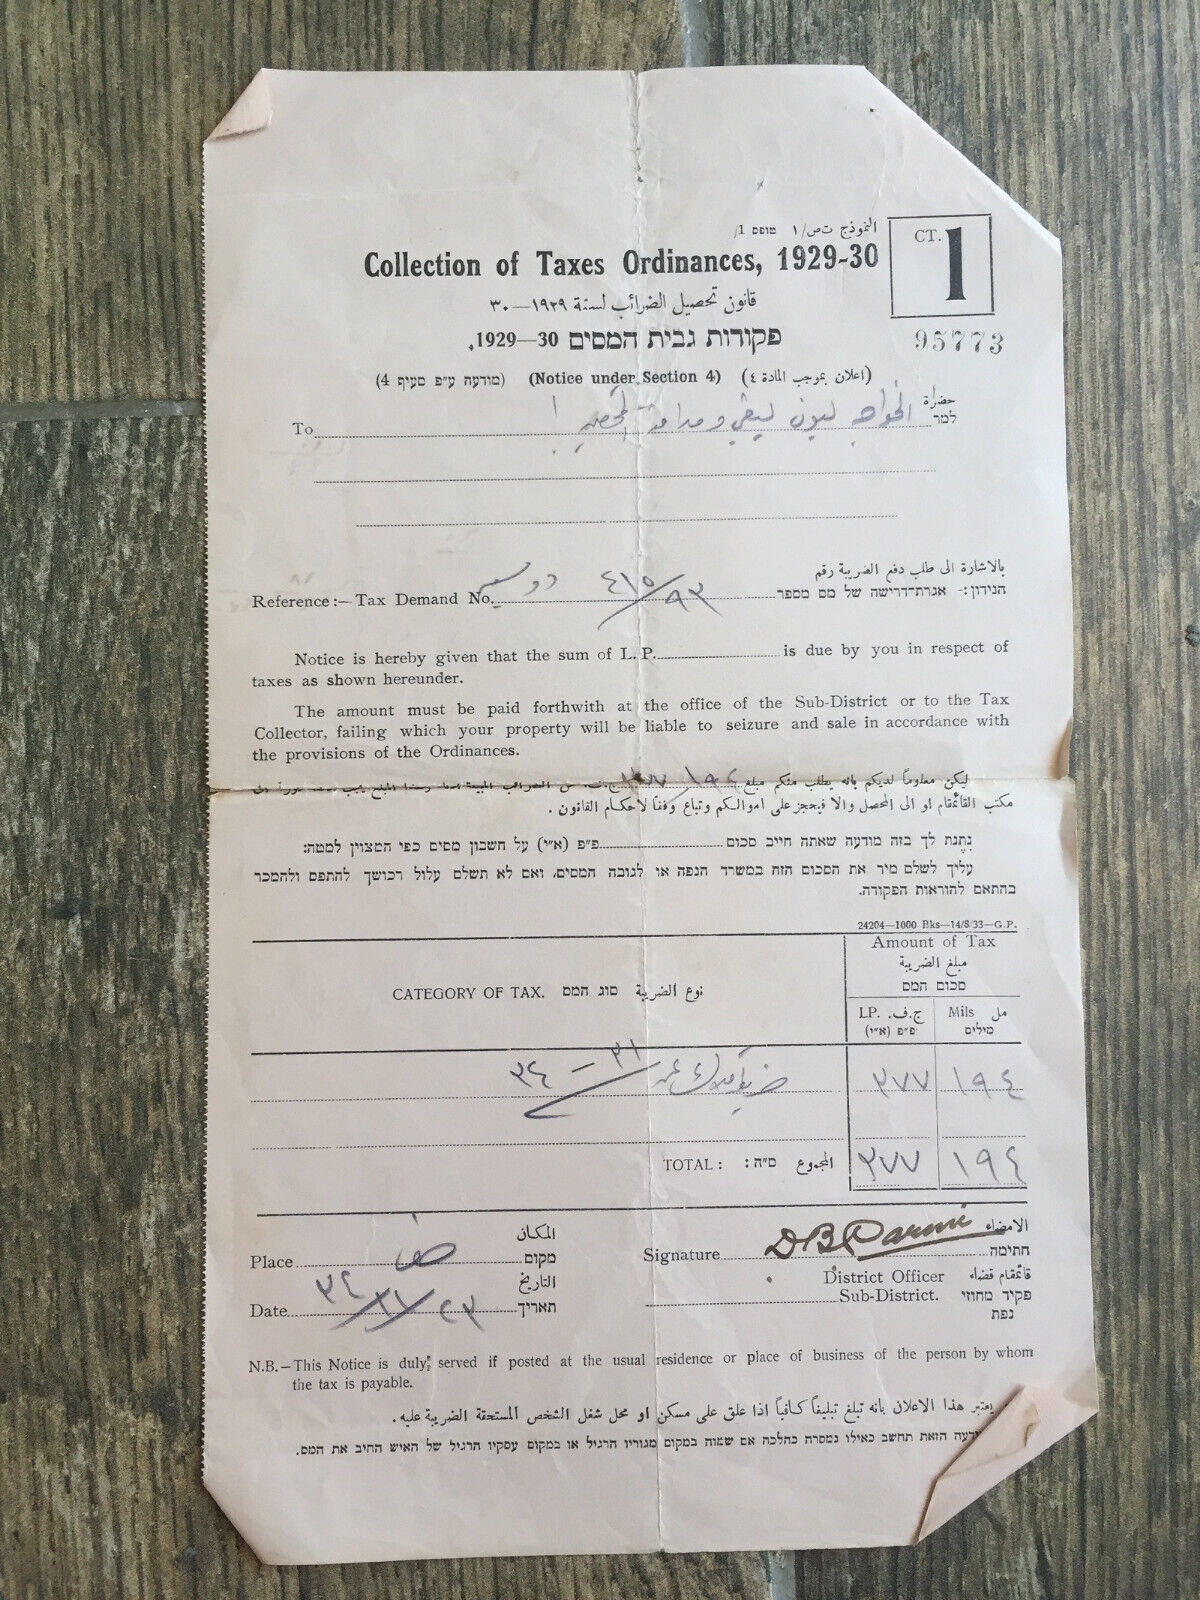 النموذج ت ص/١ טופס 1/
CT. 1
Collection of Taxes Ordinances, 1929-30
قانون تحصيل الضرائب لسنة ١٩٢٩—٣٠
פקודות גבית המסים 30—1929.
95773
(اعلان بموجب المادة ٤) (Notice under Section 4) (מודעה ע״פ סעיף 4)
حضرة
To الخواجه ليون ليفي למר
بالاشارة الى طلب دفع الضريبة رقم
Reference:— Tax Demand No. ٤١٥/٩٣ הנידון:- אגרת־דרישה של מס מספר
Notice is hereby given that the sum of L. P. is due by you in respect of
taxes as shown hereunder.
The amount must be paid forthwith at the office of the Sub-District or to the Tax
Collector, failing which your property will be liable to seizure and sale in accordance with
the provisions of the Ordinances.
ليكن معلوماً لديكم بانه يطلب منكم مبلغ ١٩٤/٣٧٧ ج.ف. من الضرائب المبينة
مكتب القائمقام او الى المحصل والا فيحجز على اموالكم وتباع وفقاً لاحكام القانون .
נתנת לך בזה מודעה שאתה חייב סכום פ״פ (א״י) על חשבון מסים כפי המצוין למטה:
עליך לשלם מיד את הסכום הזה במשרד הנפה או לגובה המסים, ואם לא תשלם עלול רכושך להתפס ולהמכר
בהתאם להוראות הפקודה.
24204—1000 Bks—14/8/33—G.P.
Amount of Tax
مبلغ الضريبة
סכום המס
CATEGORY OF TAX. סוג המס نوع الضريبة
LP. ج.ف. Mils مل
פ״פ (א״י) מילים
٣١ – ٣٤ ٣٧٧ ١٩٤
TOTAL: ס״ה: المجموع ٣٧٧ ١٩٤
المكان
Place מקום
التاريخ
Date ٢٣/١٢/٣٤ תאריך
الامضاء
Signature חתימה
District Officer قائمقام قضاء
Sub-District. פקיד מחוזי
נפת
N.B.—This Notice is duly served if posted at the usual residence or place of business of the person by whom
the tax is payable.
يعتبر هذا الاعلان بانه تبلغ تبليغاً كافياً اذا علق على مسكن او محل شغل الشخص المستحقة الضريبة عليه .
הזאת תחשב כאילו נמסרה כהלכה אם שמוה במקום מגוריו הרגיל או במקום עסקיו הרגיל של האיש החיב את המס.